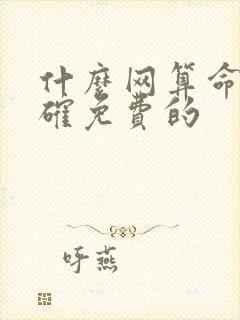 什麼网算命
確免費的
呼燕